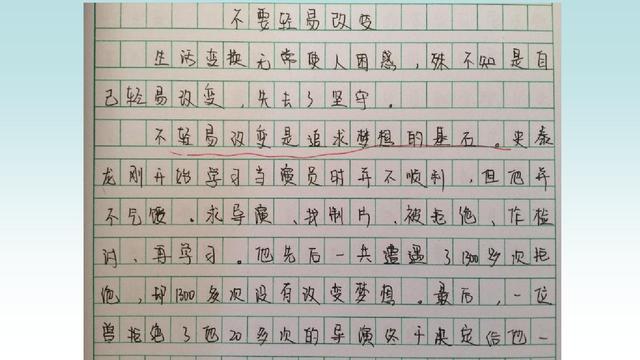 不要轻易改变
生活变换无常使人困惑，殊不知是自
己轻易改变，失去了坚守。
不轻易改变是追求梦想的基石。史泰
龙刚开始学习当演员时并不顺利，但他并
不气馁。求导演、找制片、被拒绝、作检
讨、再学习。他先后一共遭遇了1300多次拒
绝，却1300多次没有改变梦想。最后，一位
曾拒绝了他20多次的导演终于决定给他一